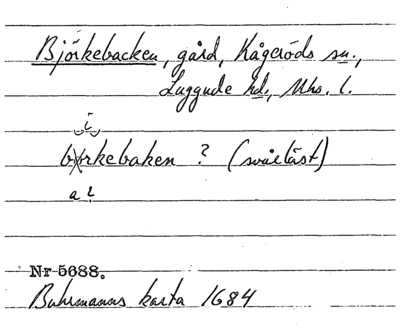 Björkebacken, gård, Kågeröds sn.,
Luggude hd., Mhs. l.
i
b rkebaken ? (svårläst)
a?
Nr 5688.
Buhrmanns karta 1684